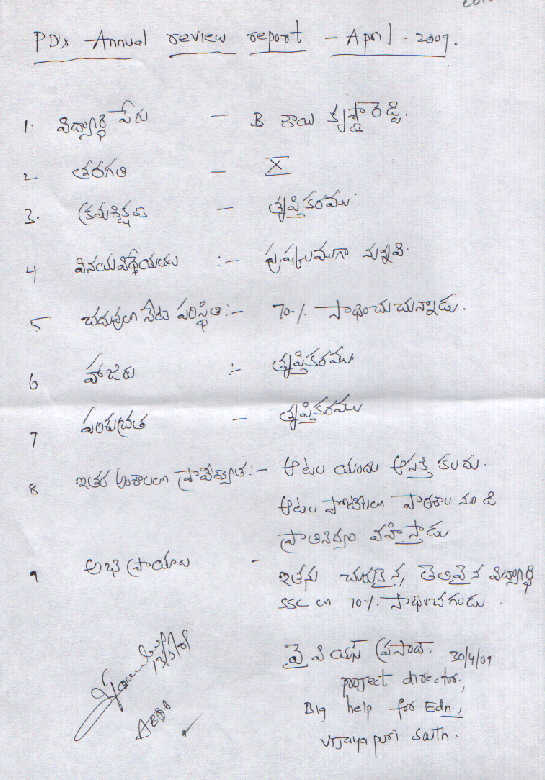 PD's Annual review report - April - 2009.
1. విద్యార్థి పేరు - B సాయి కృష్ణారెడ్డి.
2. తరగతి - X
3. క్రమశిక్షణ - తృప్తికరము
4 వినయవిధేయతలు :- పుష్కలముగా నున్నవి.
5 చదువులో నేటి పరిస్థితి:- 70%. సాధించుచున్నాడు.
6 హాజరు :- తృప్తికరము
7 పరిశుభ్రత - తృప్తికరము
8 ఇతర అంశాలలో ప్రావీణ్యత:- ఆటల యందు ఆసక్తి కలదు.
ఆటల పోటీలలో పాఠశాల నుండి
ప్రాతినిధ్యం వహిస్తాడు
9 అభిప్రాయాలు - ఇతను చురుకైన, తెలివైన విద్యార్థి
SSC లో 70%. సాధించగలడు.
వై వి యస్ ప్రసాద్. 30/4/09
project director,
Big help for Edn,
Vijayapuri South.